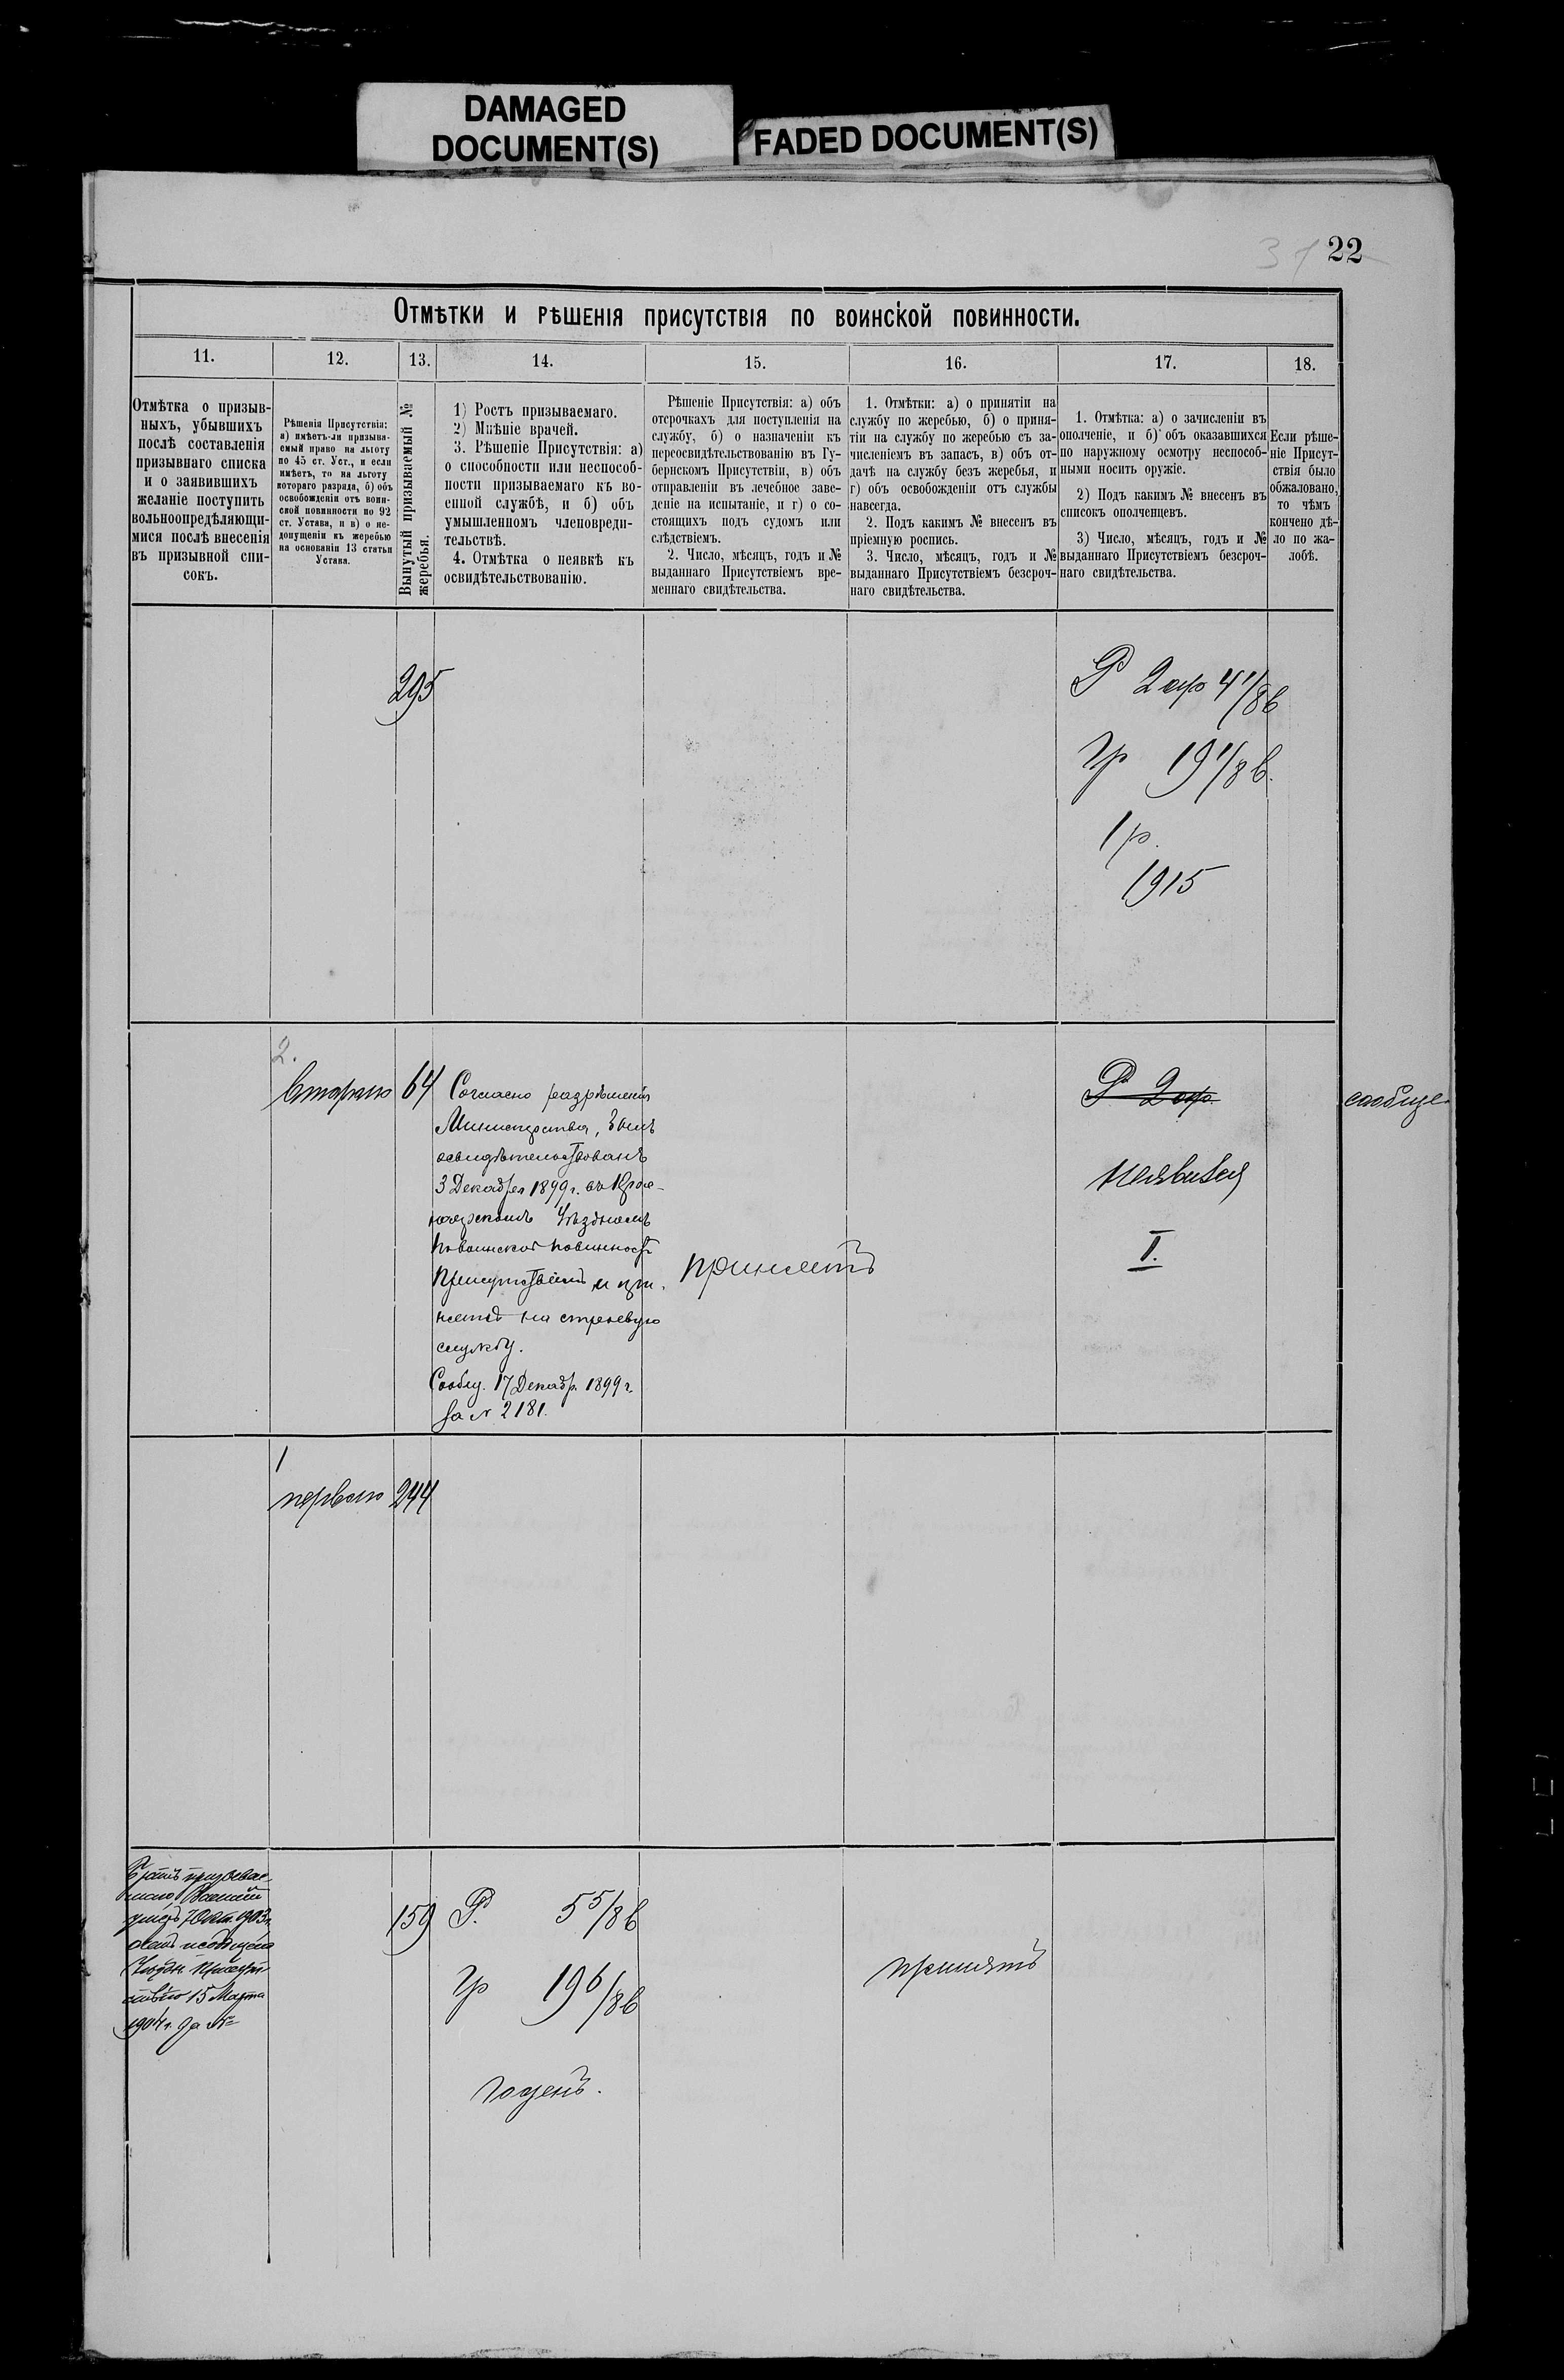 DAMAGED
DOCUMENT(S)
FADED DOCUMENT(S)
22
Отмѣтки и рѣшенія присутствія по воинской повинности.
11.
12.
13.
14.
15.
16.
17.
18.
Отмѣтка о призыв-
ныхъ, убывшихъ
послѣ составленія
призывнаго списка
и о заявившихъ
желаніе поступить
вольноопредѣляющи-
мися послѣ внесенія
въ призывной спи-
сокъ.
Рѣшенія Присутствія:
а) имѣетъ-ли призыва-
емый право на льготу
по 45 ст. Уст., и если
имѣетъ, то на льготу
котораго разряда, б) объ
освобожденіи отъ воин-
ской повинности по 92
ст. Устава, и в) о не-
допущеніи къ жеребью
на основаніи 13 статьи
Устава.
Вынутый призываемый №
жеребья.
1) Ростъ призываемаго.
2) Мнѣніе врачей.
3. Рѣшеніе Присутствія: а)
о способности или неспособ-
ности призываемаго къ во-
енной службѣ, и б) объ
умышленномъ членовреди-
тельствѣ.
4. Отмѣтка о неявкѣ къ
освидѣтельствованію.
Рѣшеніе Присутствія: а) объ
отсрочкахъ для поступленія на
службу, б) о назначеніи къ
переосвидѣтельствованію въ Гу-
бернскомъ Присутствіи, в) объ
отправленіи въ лечебное заве-
деніе на испытаніе, и г) о со-
стоящихъ подъ судомъ или
слѣдствіемъ.
2. Число, мѣсяцъ, годъ и №
выданнаго Присутствіемъ вре-
меннаго свидѣтельства.
1. Отмѣтки: а) о принятіи на
службу по жеребью, б) о приня-
тіи на службу по жеребью съ за-
численіемъ въ запасъ, в) объ от-
дачѣ на службу безъ жеребья, и
г) объ освобожденіи отъ службы
навсегда.
2. Подъ какимъ № внесенъ въ
пріемную роспись.
3. Число, мѣсяцъ, годъ и №
выданнаго Присутствіемъ безсроч-
наго свидѣтельства.
1. Отмѣтка: а) о зачисленіи въ
ополченіе, и б) объ оказавшихся
по наружному осмотру неспособ-
ными носить оружіе.
2) Подъ какимъ № внесенъ въ
списокъ ополченцевъ.
3) Число, мѣсяцъ, годъ и №
выданнаго Присутствіемъ безсроч-
наго свидѣтельства.
Если рѣше-
ніе Присут-
ствія было
обжаловано,
то чѣмъ
кончено дѣ-
ло по жа-
лобѣ.
295
Р 2 ар 4 1/8 в
Гр 19 1/8 в.
1 р.
1915
2.
Втораго
64
Согласно разрѣшенія
Министерства,
освидѣтельствованъ
3 Декабря 1899 г. въ Крас-
ноярскомъ Уѣздномъ
по воинской повинности
Присутствіемъ и при-
нятъ на строевую
службу.
Сообщ. 17 Декабр. 1899 г.
за № 2181.
принятъ
Р 2 ар.
неявился
I.
сообще
1
перваго
244
Братъ призывае-
маго,
7 Окт. 1903 г.
Присут-
ствію 15 Марта
1904 г. за №
159
Р. 5 5/8 в
Гр 19 6/8 в
годенъ.
принятъ